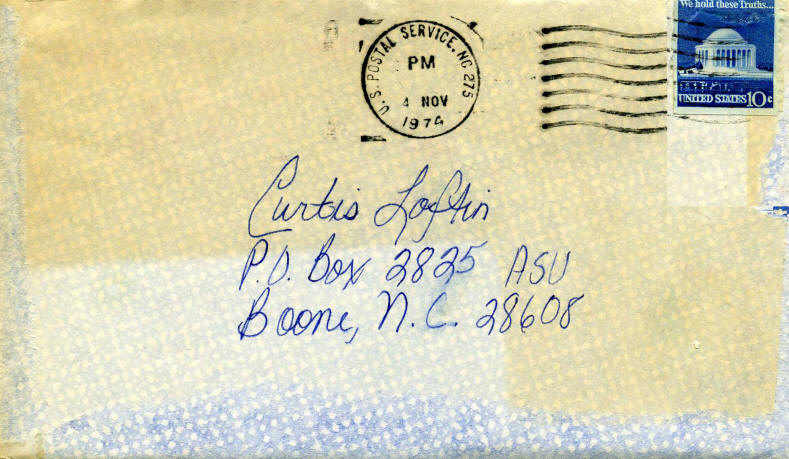 We hold these Truths...
UNITED STATES 10c
U.S. POSTAL SERVICE, NC 275
PM
4 NOV
1974
Curtis Loftin
P.O. Box 2825 ASU
Boone, N.C. 28608